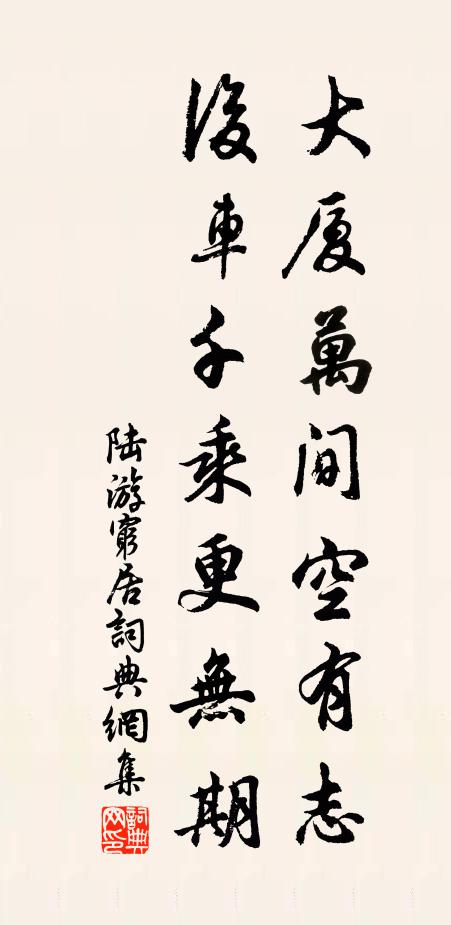 大厦萬間空有志
後車千乘更無期
陸游窮居詞典網集
詞典网印